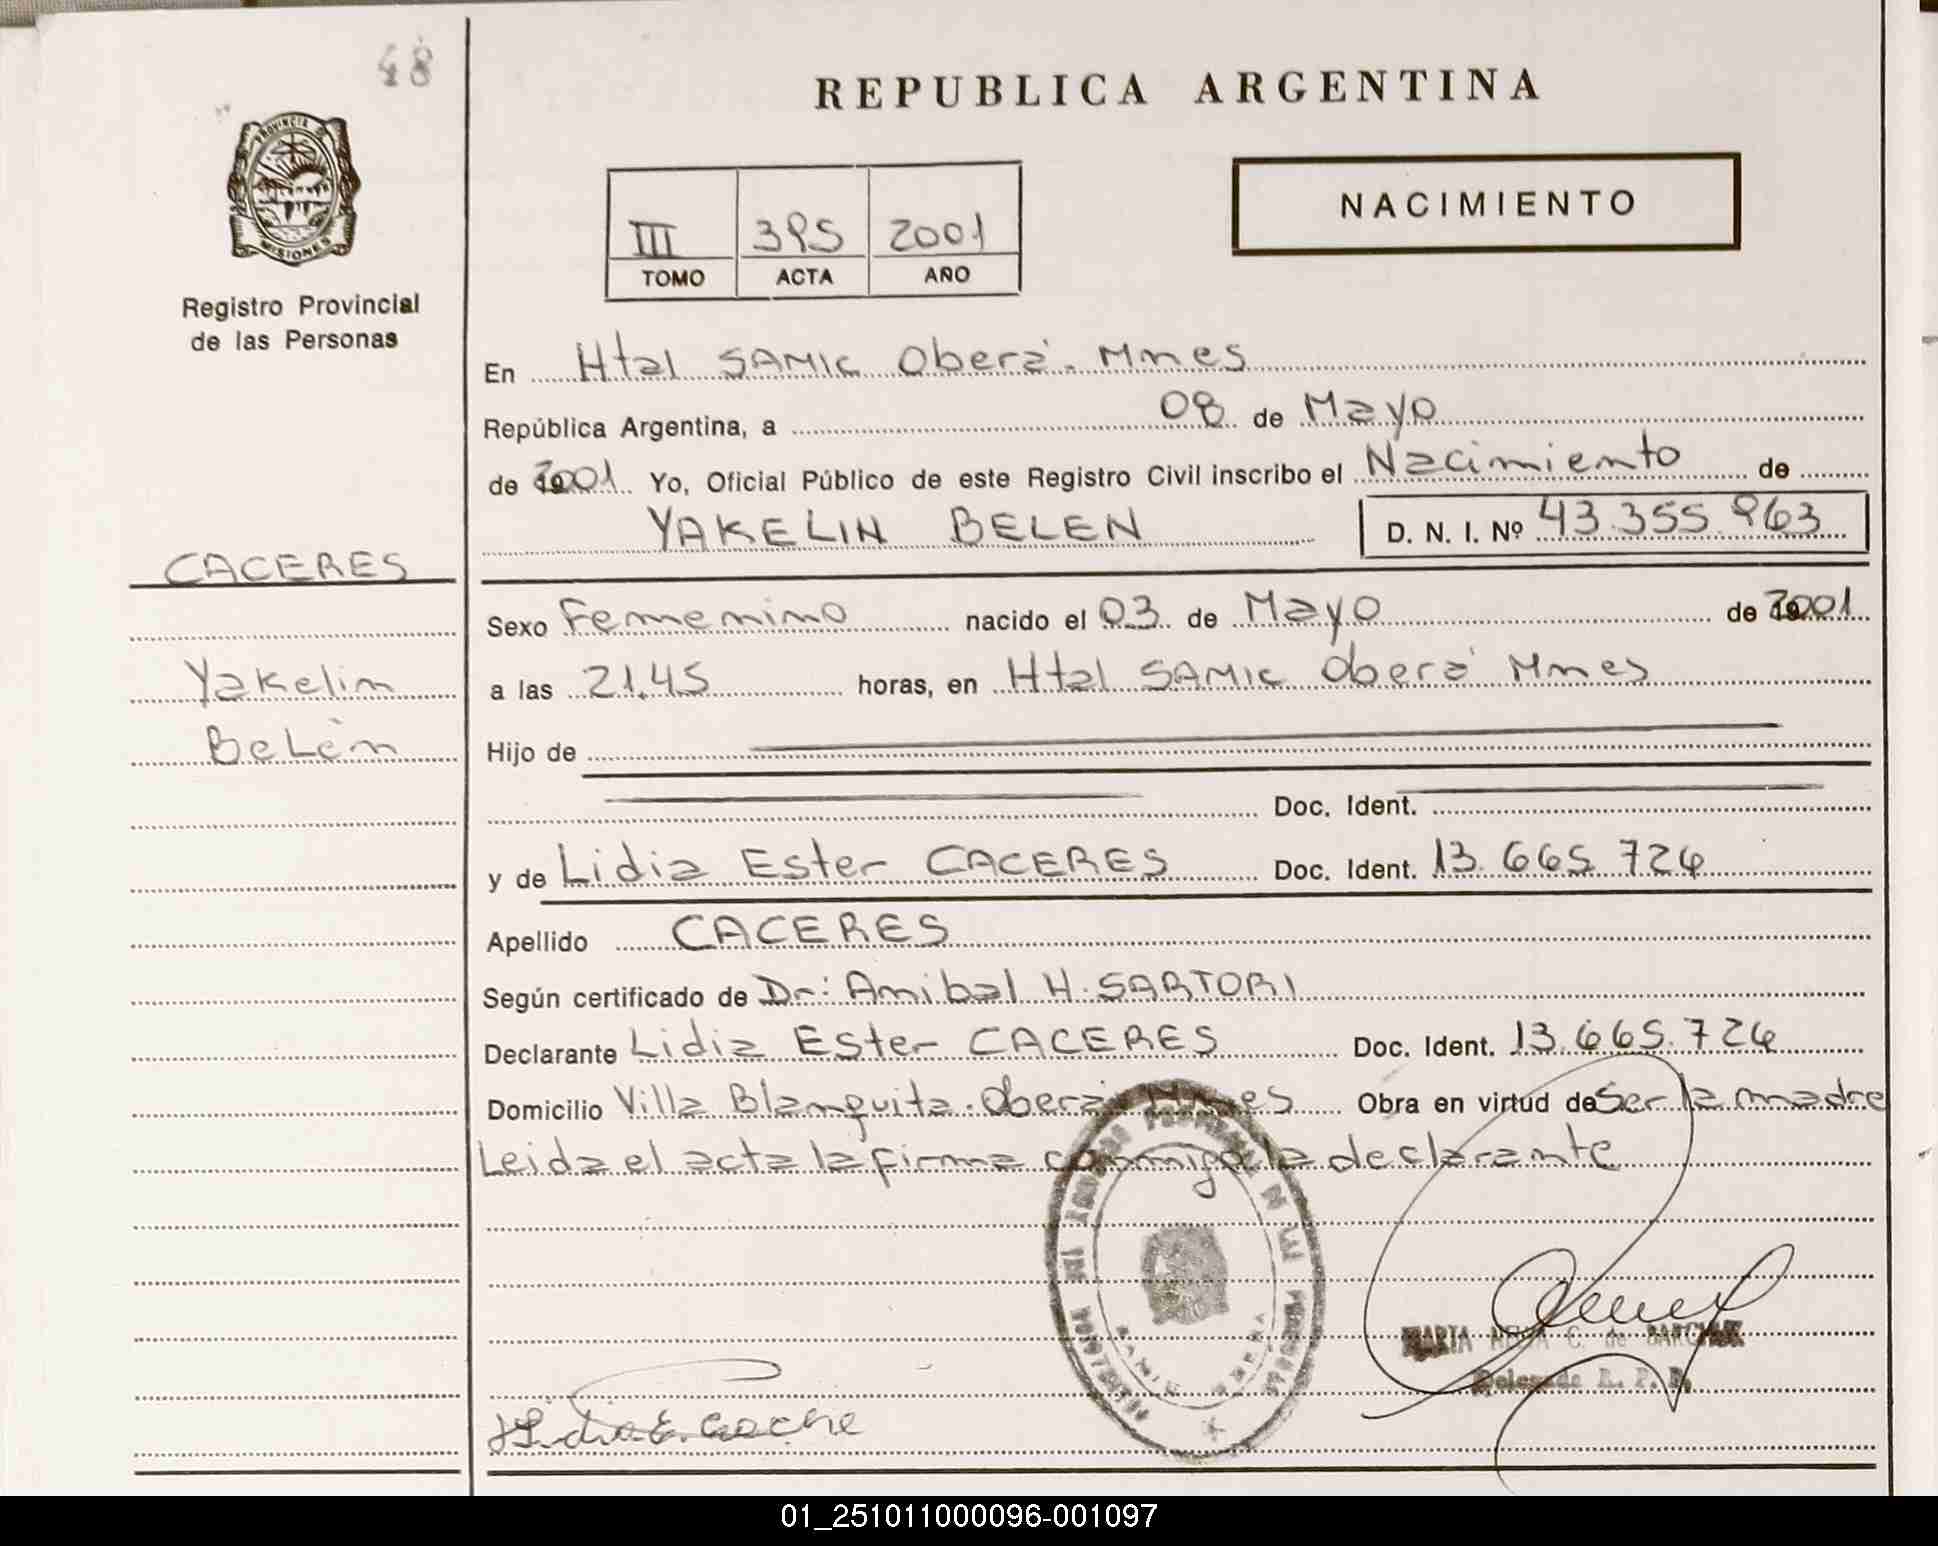 48
REPUBLICA ARGENTINA
PROVINCIA DE
MISIONES
Registro Provincial
de las Personas
NACIMIENTO
III 395 2001
TOMO ACTA AÑO
En Htal SAMIC Oberá. Mnes
República Argentina, a 08 de Mayo
de 2001 Yo, Oficial Público de este Registro Civil inscribo el Nacimiento de
YAKELIN BELEN D. N. I. Nº 43.355.963
CACERES
Yakelin
Belén
Sexo Femenino nacido el 03 de Mayo de 2001
a las 21.45 horas, en Htal SAMIC Oberá Mnes
Hijo de
Doc. Ident.
y de Lidia Ester CACERES Doc. Ident. 13.665.724
Apellido CACERES
Según certificado de Dr: Anibal H. SARTORI
Declarante Lidia Ester CACERES Doc. Ident. 13.665.724
Domicilio Villa Blanquita. Oberá Mnes Obra en virtud de Ser la madre
Leida el acta la firma conmigo la declarante
MARTA C. de
Delegada R. P. P.
01_251011000096-001097